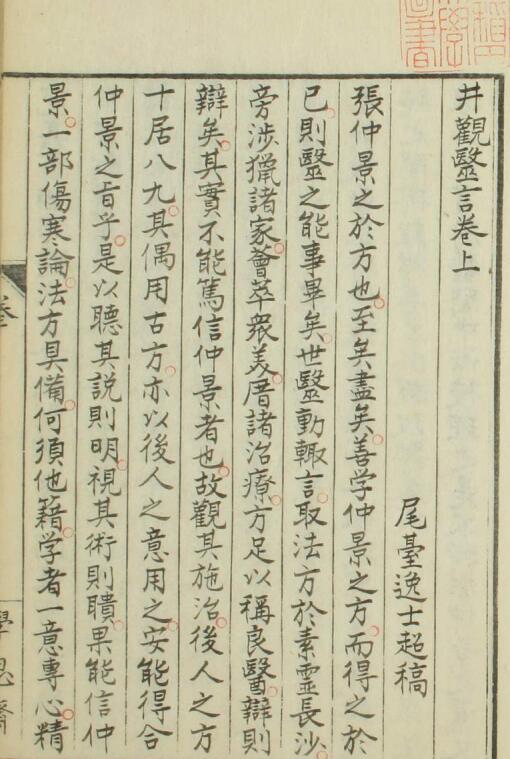 井觀毉言巻上
尾臺逸士超稿
張仲景之於方也至矣盡矣善学仲景之方而得之於
已則毉之能事畢矣世毉動輙言取法方於素霊長沙
旁渉獵諸家薈萃衆美厝諸治療方足以稱良毉辯則
辯矣其實不能篤信仲景者也故觀其施治後人之方
十居八九其偶用古方亦以後人之意用之安能得合
仲景之旨乎是以聽其説則明視其術則聵果能信仲
景一部傷寒論法方具備何須他籍学者一意專心精